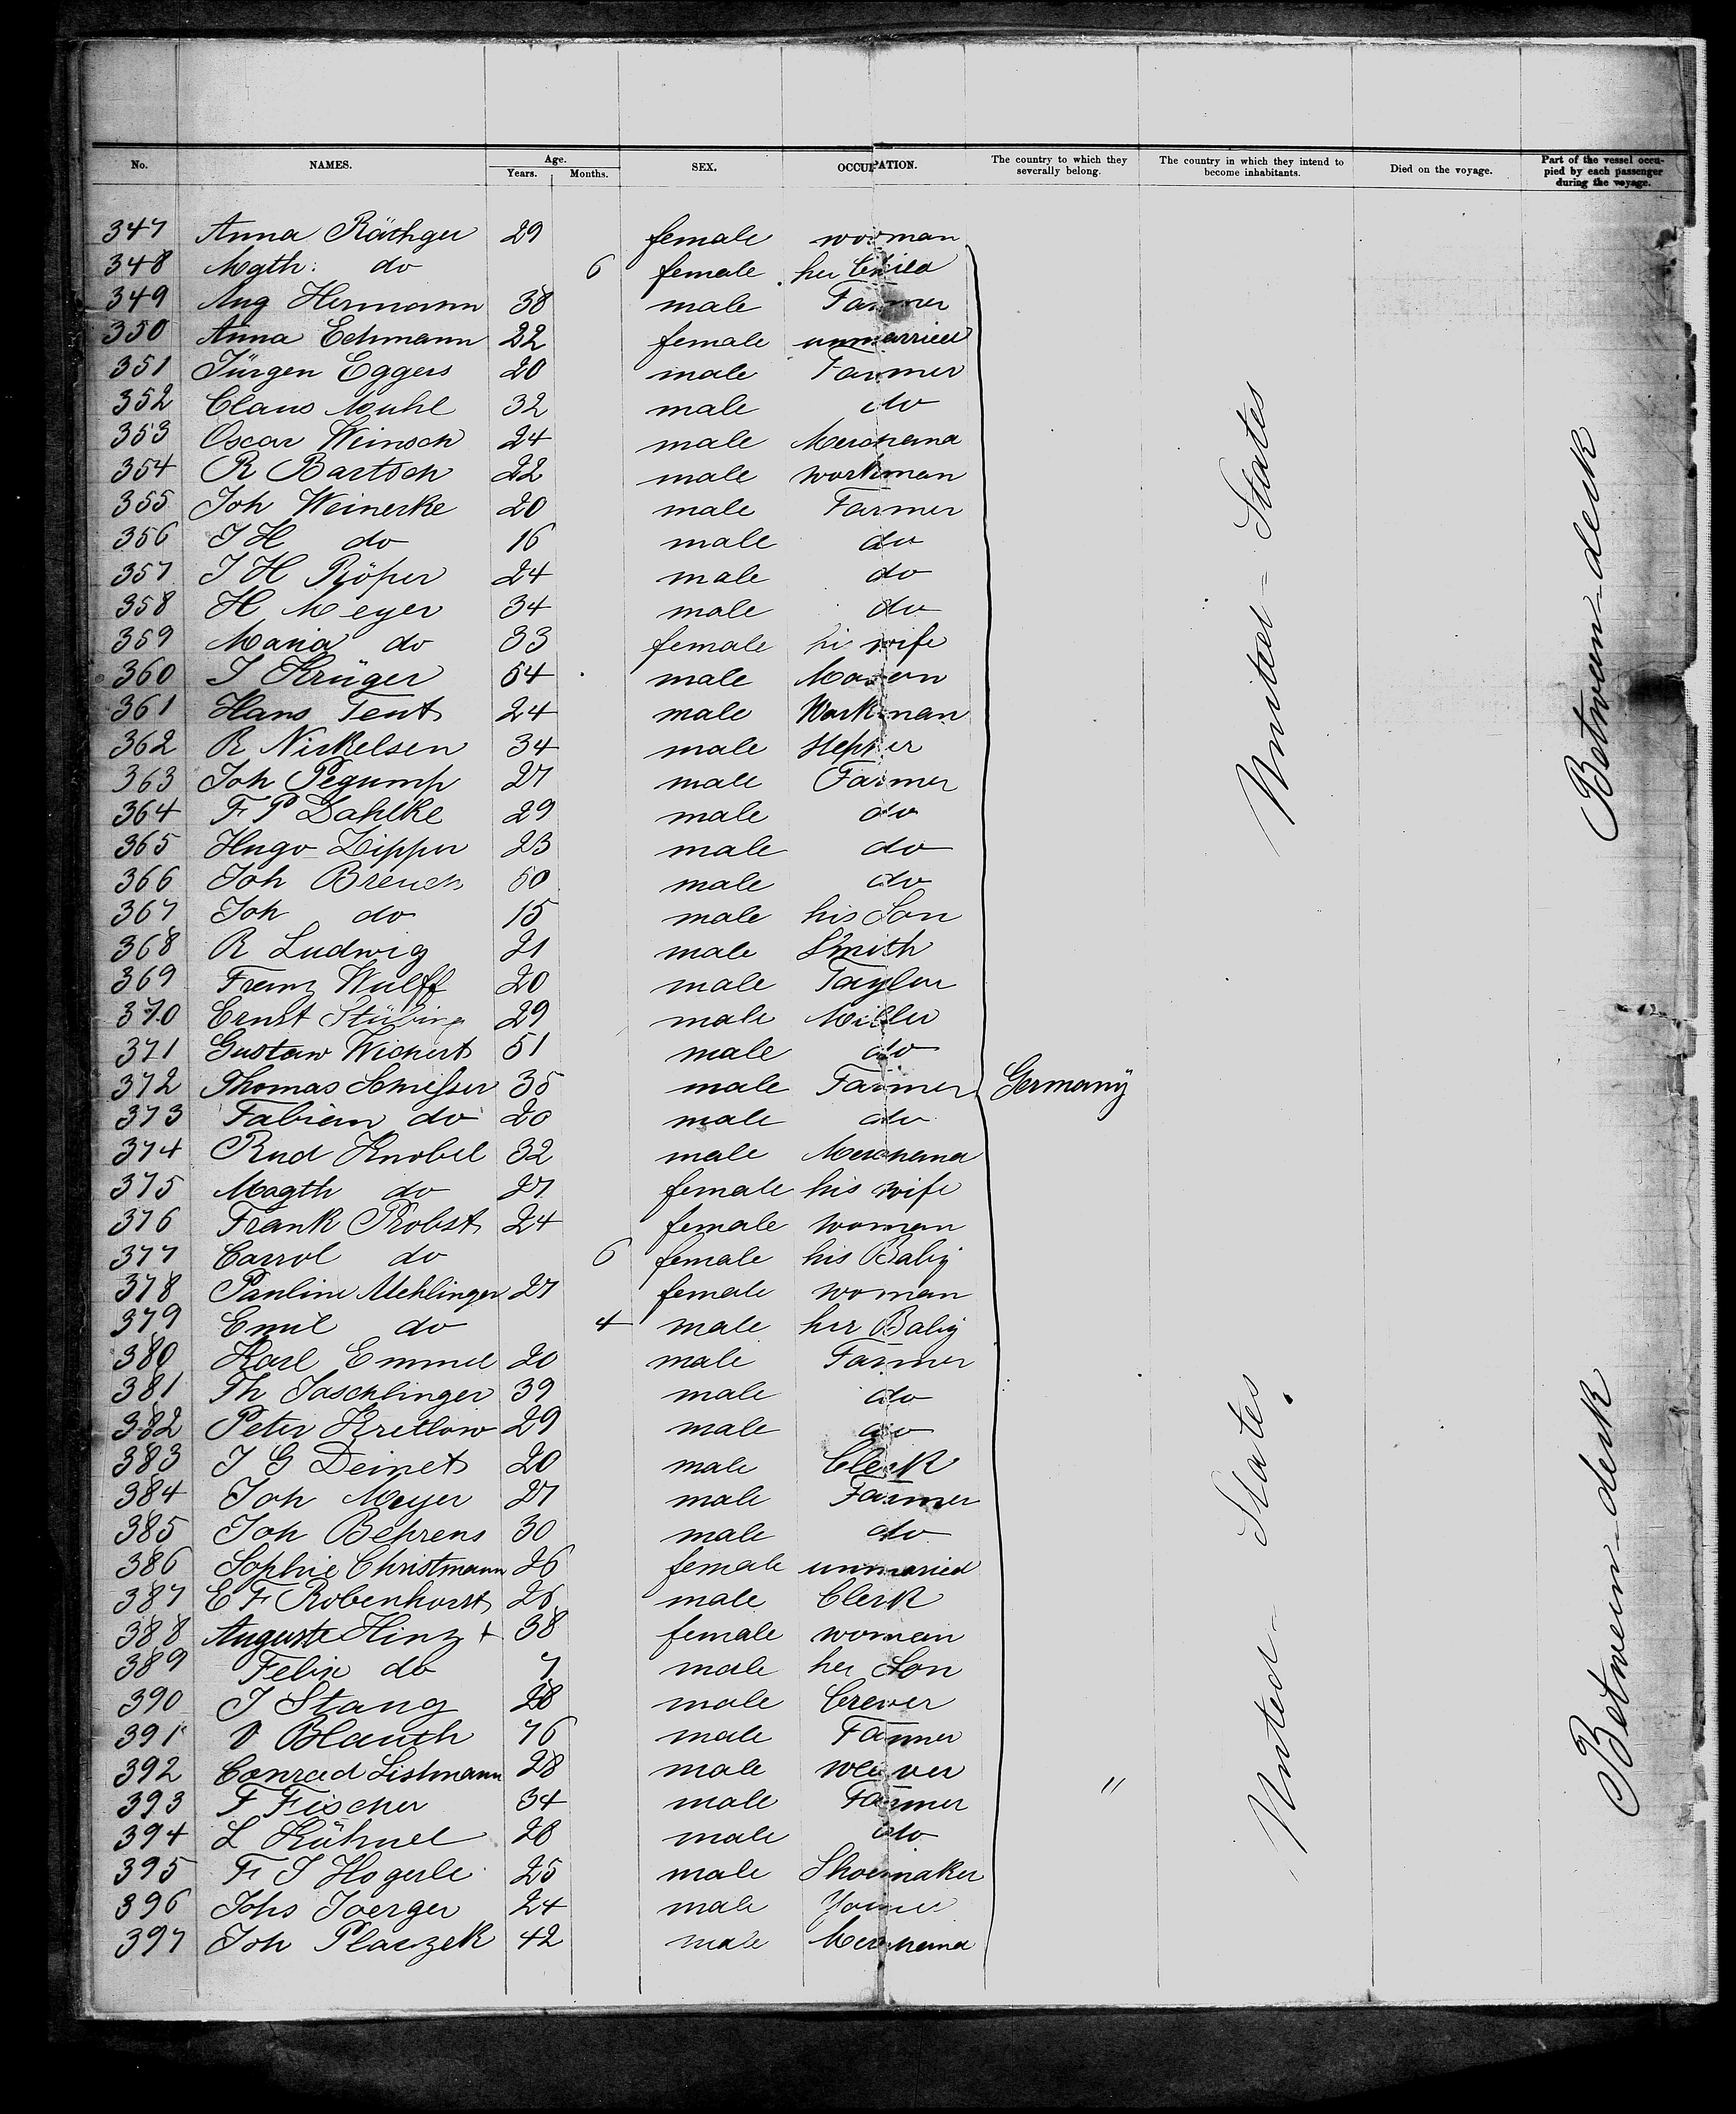 No. NAMES. Age. Years. Months. SEX. OCCUPATION. The country to which they severally belong. The country in which they intend to become inhabitants. Died on the voyage. Part of the vessel occupied by each passenger during the voyage.
347 Anna Räthger 29 female woman
348 Mgth: do 6 female her Child
349 Aug Hermann 38 male Farmer
350 Anna Echmann 22 female unmarried
351 Jürgen Eggers 20 male Farmer
352 Claus Muhl 32 male do
353 Oscar Weinsch 24 male
354 R Bartsch 22 male workman
355 Joh Weinerke 20 male Farmer
356 J H do 16 male do
357 J H Röper 24 male do
358 H Meyer 34 male do
359 Maria do 33 female wife
360 J Krüger 54 male Mason
361 Hans Tent 24 male Workman
362 R Nickelsen 34 male
363 Joh Pegump 27 male Farmer
364 F P Dahlke 29 male do
365 Hugo Zipper 23 male do
366 Joh Breuch 50 male do
367 Joh do 15 male his Son
368 R Ludwig 21 male Smith
369 Franz Wulff 20 male Taylor
370 Ernst Stübing 29 male Miller
371 Gustav Wichert 51 male do
372 Thomas 35 male Farmer Germany
373 Fabian do 20 male do
374 Rud Knobel 32 male
375 Magth do 27 female his wife
376 Frank Probst 24 female woman
377 Carrol do 6 female his Baby
378 Pauline Mehlinger 27 female woman
379 Emil do 4 male her Baby
380 Karl Emmel 20 male Farmer
381 Th Jaschlinger 39 male do
382 Peter Kretlow 29 male do
383 J G Deinet 20 male Clerk
384 Joh Meyer 27 male Farmer
385 Joh Behrens 30 male do
386 Sophie Christmann 26 female unmaried
387 E F Robenhorst 26 male Clerk
388 Auguste Hinz + 38 female woman
389 Felix do 7 male her Son
390 J Stang 28 male
391 Blauth 76 male Farmer
392 Conrad Listmann 28 male weaver "
393 F Fischer 34 male Farmer
394 L Kühnel 28 male do
395 F J Hogerle 25 male Shoemaker
396 Johs Joerger 24 male
397 Joh Placzek 42 male
United-States
United-States
Between-deck
Between-deck